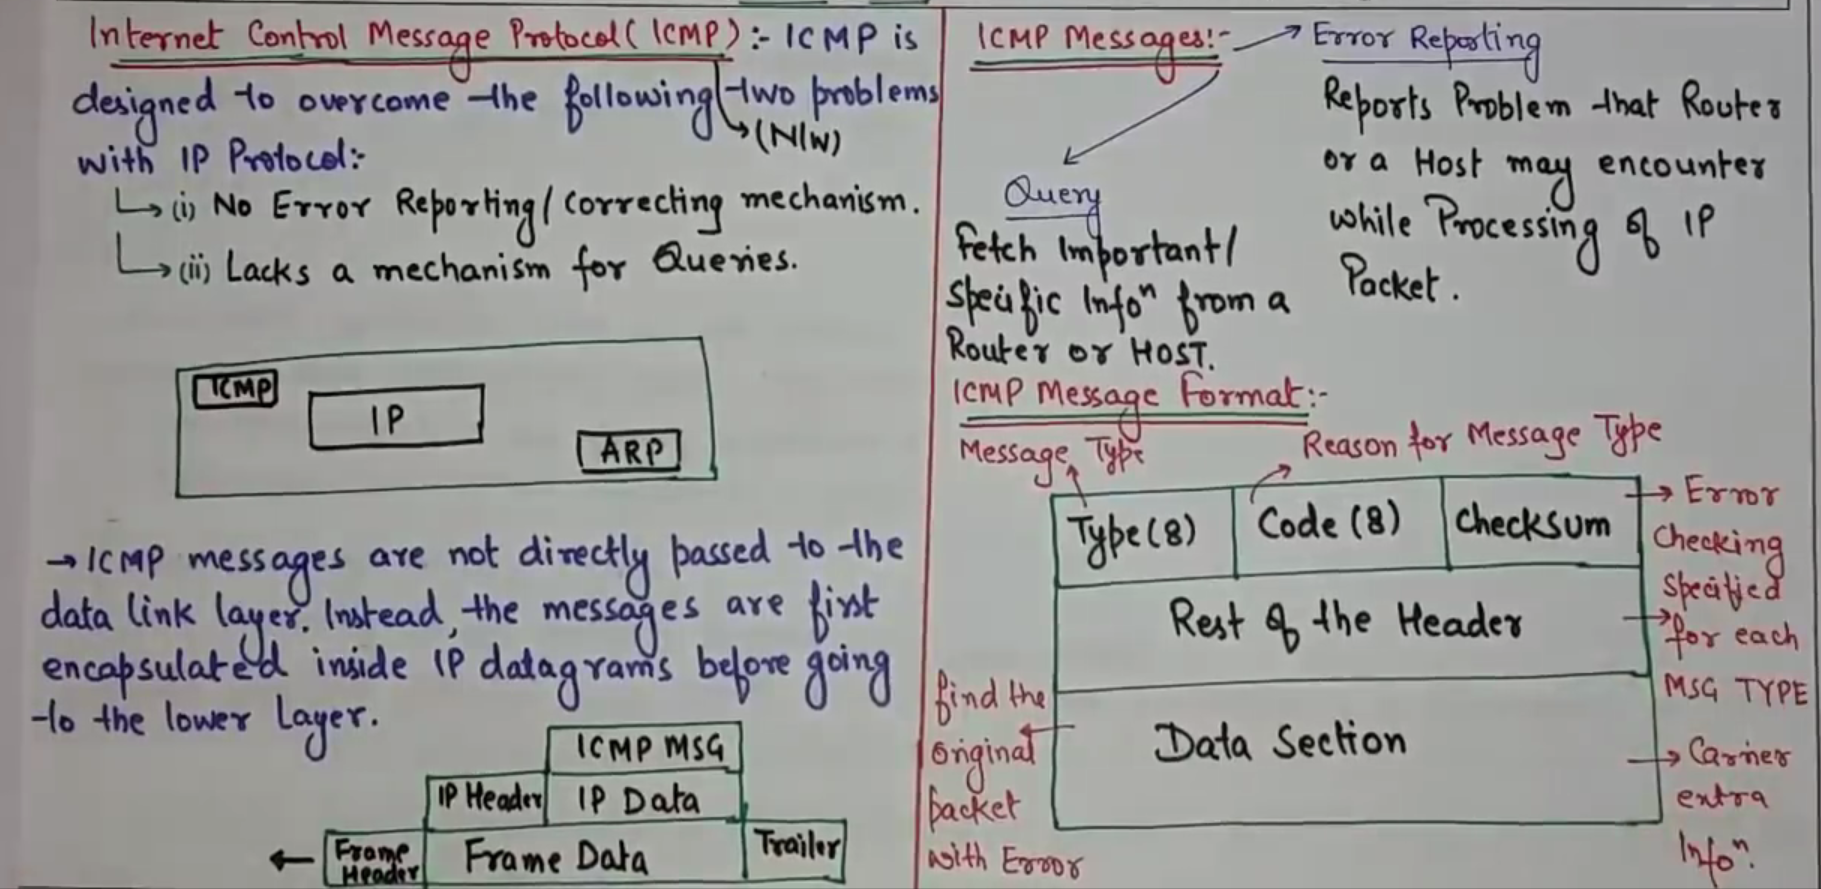 Internet Control Message Protocol (ICMP) :- ICMP is
designed to overcome the following two problems
(N/W)
with IP Protocol:-
(i) No Error Reporting/correcting mechanism.
(ii) Lacks a mechanism for Queries.
ICMP
IP
ARP
→ ICMP messages are not directly passed to the
data link layer. Instead, the messages are first
encapsulated inside IP datagrams before going
to the lower Layer.
ICMP MSG
IP Header IP Data
Frame Header Frame Data Trailer
ICMP Messages:- → Error Reporting
Reports Problem that Router
or a Host may encounter
while Processing of IP
Packet.
Query
Fetch Important/
Specific Infoⁿ from a
Router or HOST.
ICMP Message Format:-
Message Type
Reason for Message Type
Type (8) Code (8) Checksum
→ Error
Checking
Rest of the Header
specified
→ for each
MSG TYPE
Data Section
find the
original
packet
with Error
→ Carries
extra
Infoⁿ.